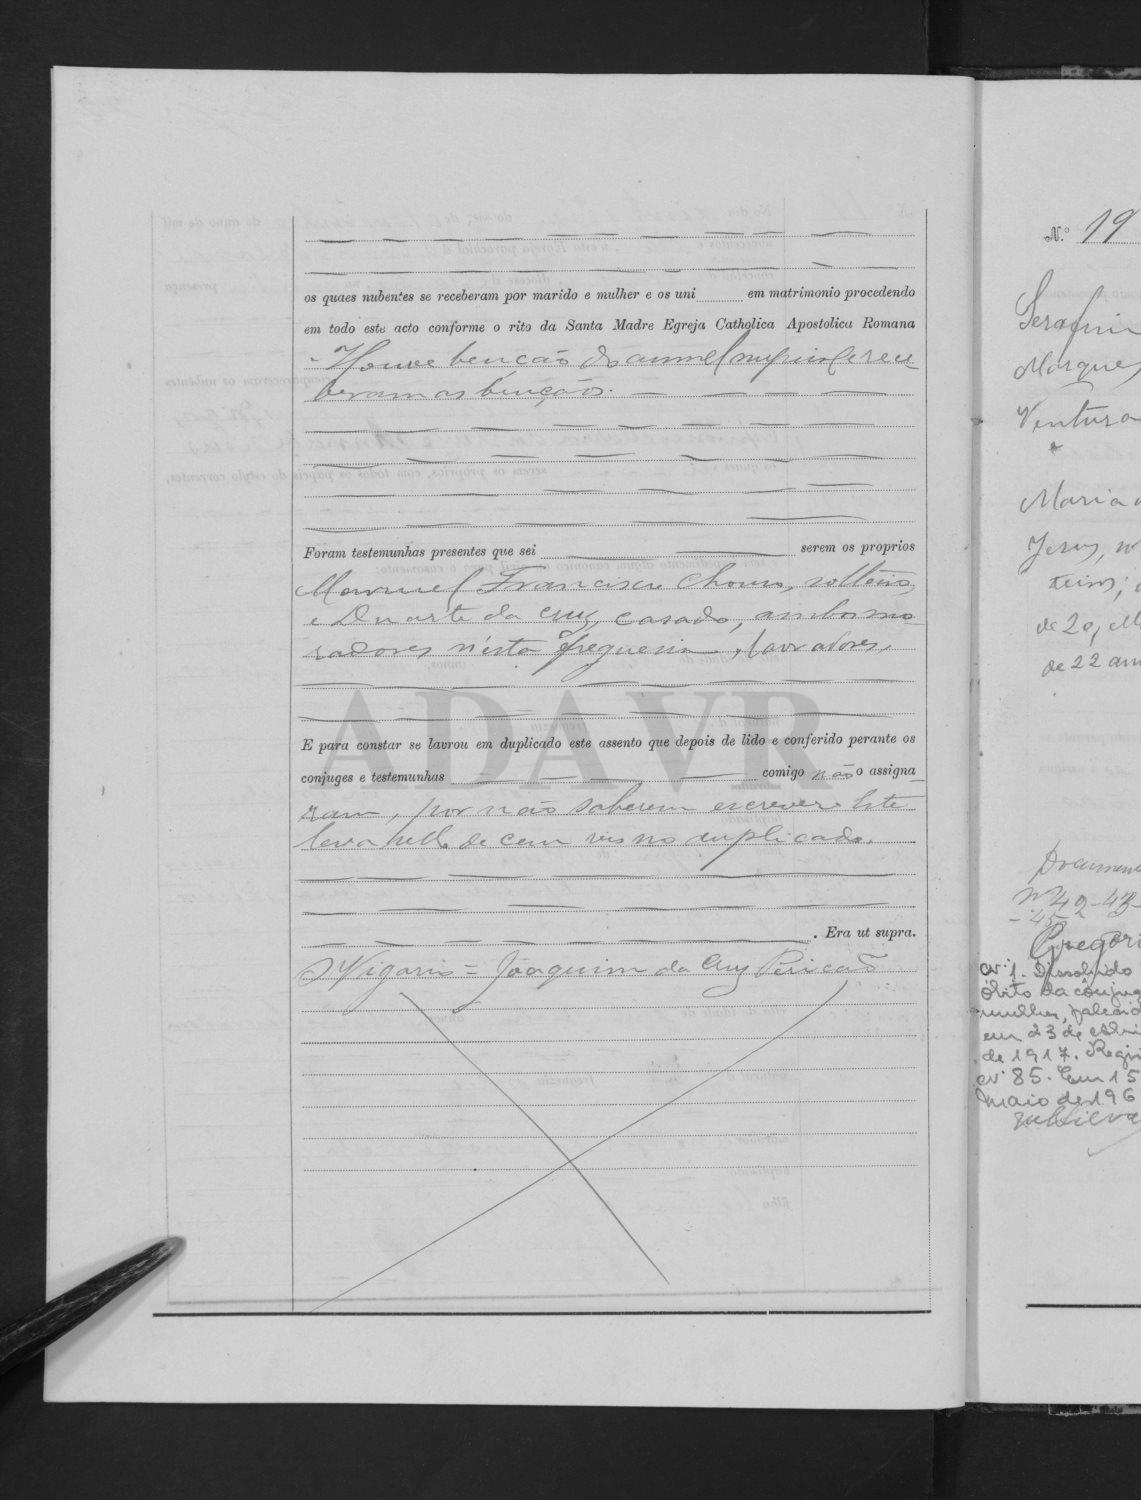 os quaes nubentes se receberam por marido e mulher e os uni em matrimonio procedendo
em todo este acto conforme o rito da Santa Madre Egreja Catholica Apostolica Romana
Houve benção do annel nupcial e rece
beram as bençãos.
Foram testemunhas presentes que sei serem os proprios
Manuel Francisco Chouso, solteiro,
e Duarte da Cruz, casado, ambos mo
radores n'esta freguesia, lavradores,
ADAVR
E para constar se lavrou em duplicado este assento que depois de lido e conferido perante os
conjuges e testemunhas comigo não o assigna
ram, por não saberem escrever. Este
leva sello de cem reis no duplicado.
. Era ut supra.
O Vigario = Joaquim da Cruz Pericão
N.º 19
Serafim
Marques
Ventura
e
Maria
Jesus,
teiros;
de 20,
de 22 ann
Documen
nº 42-43-
-45
Gregori
nº 1. Dissolvido
óbito da cônjuge
mulher, falecid
em 23 de abri
de 1917. Regis
nº 85. Em 15
maio de 196